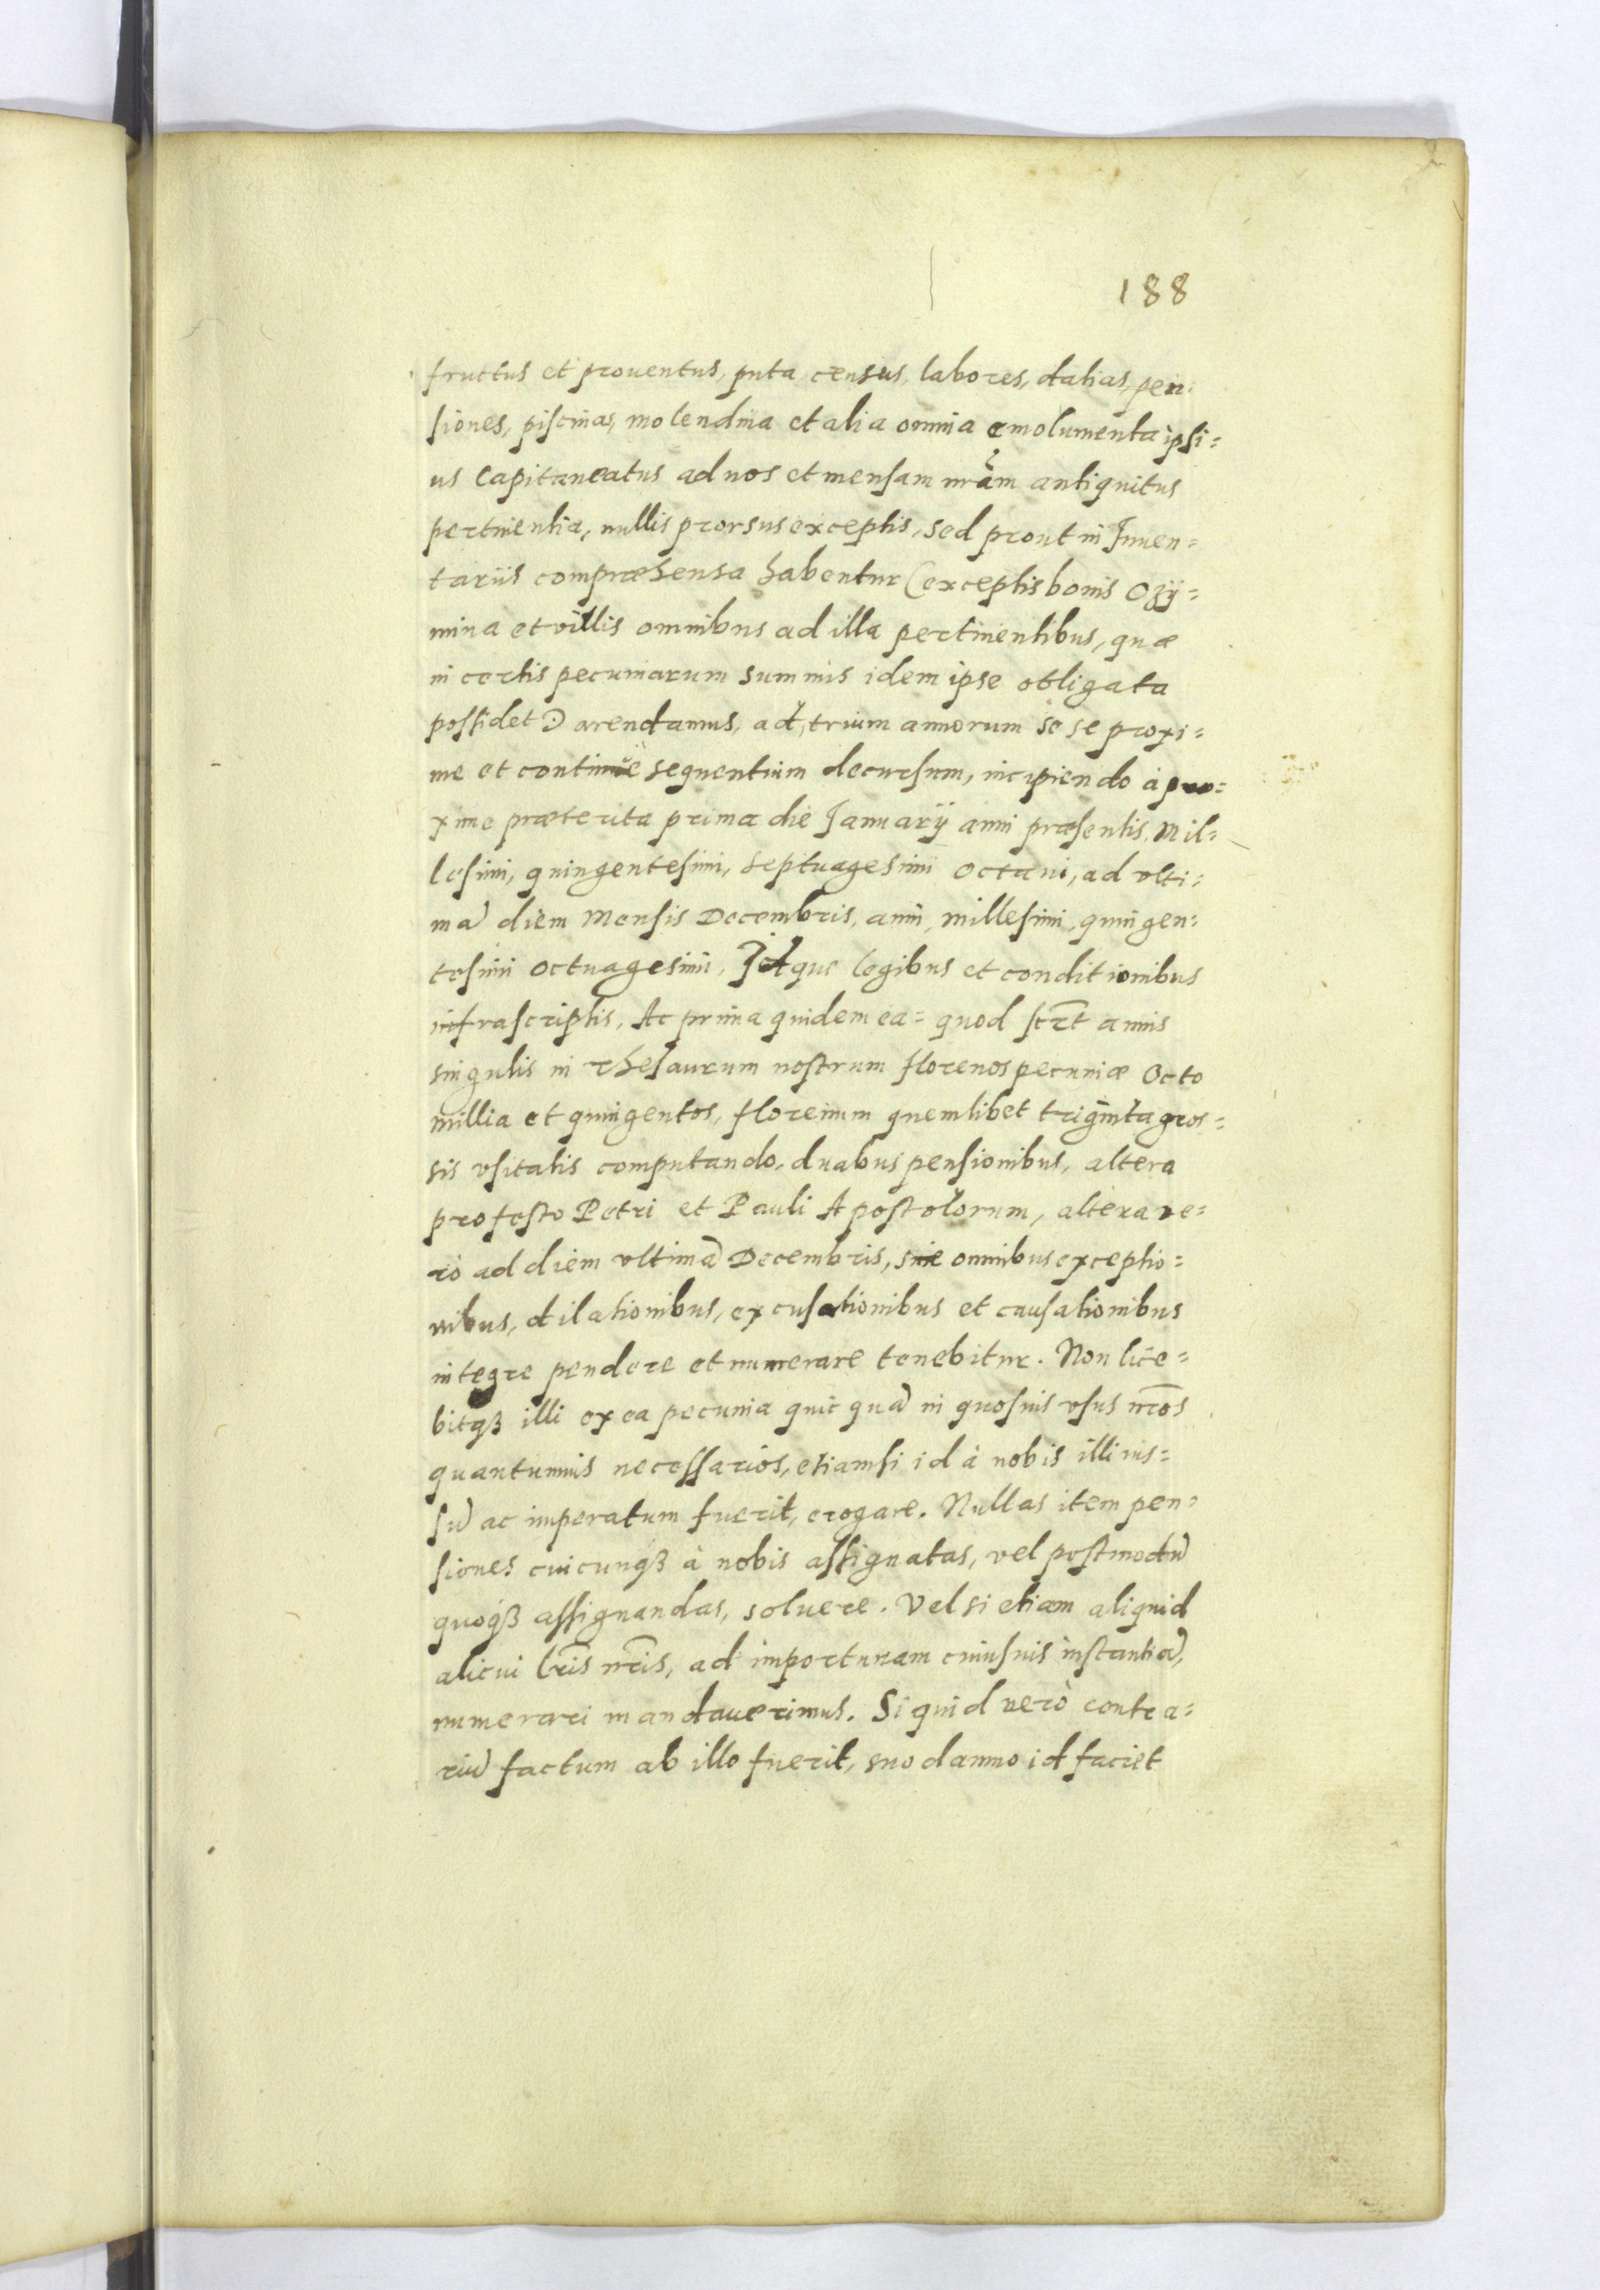 188
fructus et prouentus, puta census, labores, datias, pen=
siones, piscinas, molendina et alia omnia emolumenta ipsi=
us Capitaneatus ad nos et mensam nram antiquitus
pertinentia, nullis prorsus exceptis, sed prout in Inuen=
tariis compræhensa habentur (exceptis bonis Ozÿ=
mina et villis omnibus ad illa pertinentibus, quæ
in certis pecuniarum summis idem ipse obligata
possidet) arendamus, ad trium annorum se se proxi=
me et continuè sequentium decursum, incipiendo à pro=
xime præterita prima die Januarÿ anni præsentis, Mil=
lesimi, quingentesimi, septuagesimi octaui, ad vlti=
mã diem Mensis Decembris, anni, millesimi, quingen=
tesimi octuagesimi, Idque legibus et conditionibus
infrascriptis, Ac prima quidem ea= quod scꝛt annis
singulis in thesaurum nostrum florenos pecuniæ Octo
millia et quingentos, florenum quemlibet triginta gros=
sis vsitatis computando, duabus pensionibus, altera
pro festo Petri et Pauli Apostolorum, altera ve=
rò ad diem vltimã Decembris, sine omnibus exceptio=
nibus, dilationibus, excusationibus et causationibus
integre pendere et numerare tenebitur. Non lice=
bitqȝ illi ex ea pecunia quic quã in quosuis vsus nr̃os
quantumuis necessarios, etiamsi id à nobis illi ius=
sũ ac imperatum fuerit, erogare. Nullas item pen=
siones cuicunqȝ à nobis assignatas, vel postmodũ
quoqȝ assignandas, soluere. Vel si etiam aliquid
alicui lr̃is nr̃is, ad importunam cuiusuis instantiã,
numerari mandauerimus. Si quid verò contra=
riũ factum ab illo fuerit, suo damno id faciet